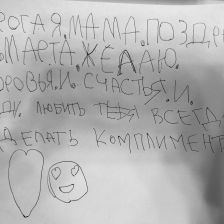 РОГАЯ.МАМА.ПОЗДР
МАРТА.ЖЕЛАЮ.
ОРОВЬЯ.И.СЧАСТЬЯ.И.
ДУ. ЛЮБИТЬ ТЕБЯ ВСЕГДА
ДЕЛАТЬ КОМПЛИМЕНТ